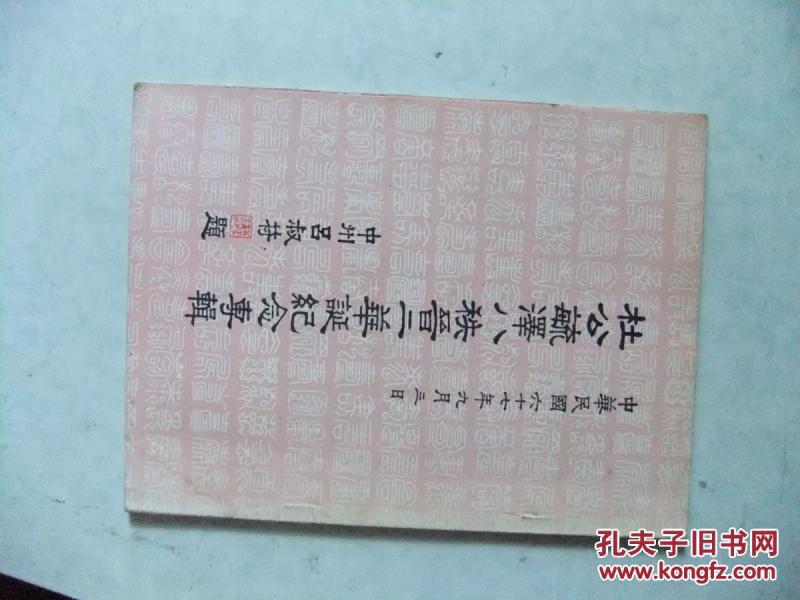 杜公毓澤八秩晉二華誕紀念專輯
中州呂淑符題
中華民國六十七年九月三日
孔夫子旧书网
www.kongfz.com